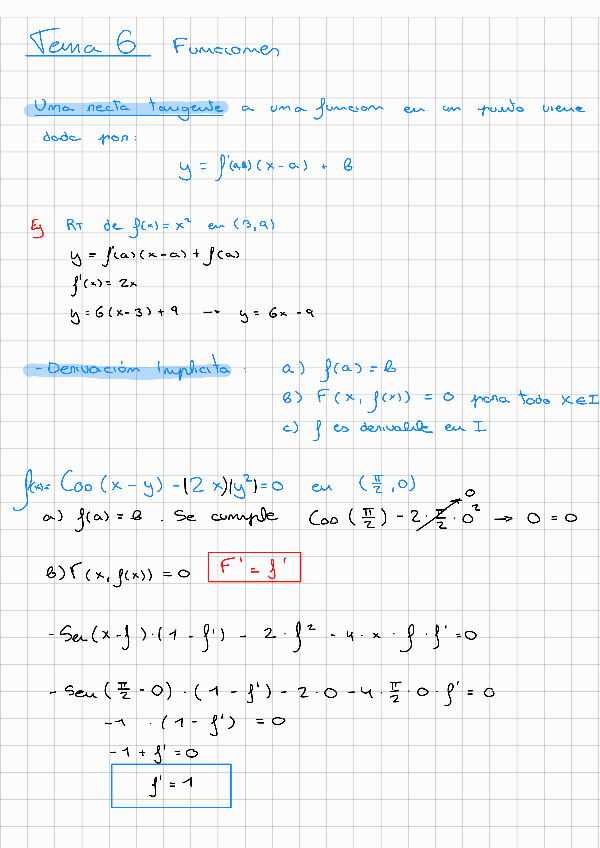 Tema 6 Funciones
Una recta tangente a una funcion en un punto viene
dada por:
y = f'(a,b)(x-a) + b
Ej RT de f(x)=x² en (3,9)
y = f'(a)(x-a)+f(a)
f'(x)=2x
y=6(x-3)+9 → y=6x-9
- Derivación Implicita : a) f(a)=b
b) F(x, f(x)) = 0 para todo x∈I
c) f es derivable en I
f(x)= Cos(x-y) - (2x)(y²)=0 en (π/2, 0)
a) f(a)=b. Se cumple Cos(π/2) - 2·π/2·0² → 0=0
0
b) F(x, f(x)) = 0 F' = f'
- Sen(x-f)·(1-f') - 2·f² - 4·x·f·f'=0
- Sen(π/2-0)·(1-f')-2·0-4·π/2·0·f'=0
-1 ·(1-f') = 0
-1+f'=0
f'=1